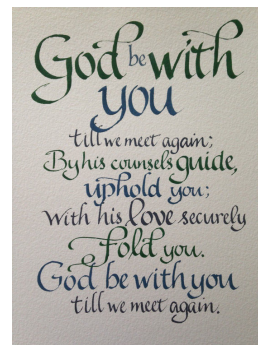 God be with
you
till we meet again;
By his counsels guide,
uphold you;
With his love securely
Fold you.
God be with you
till we meet again.